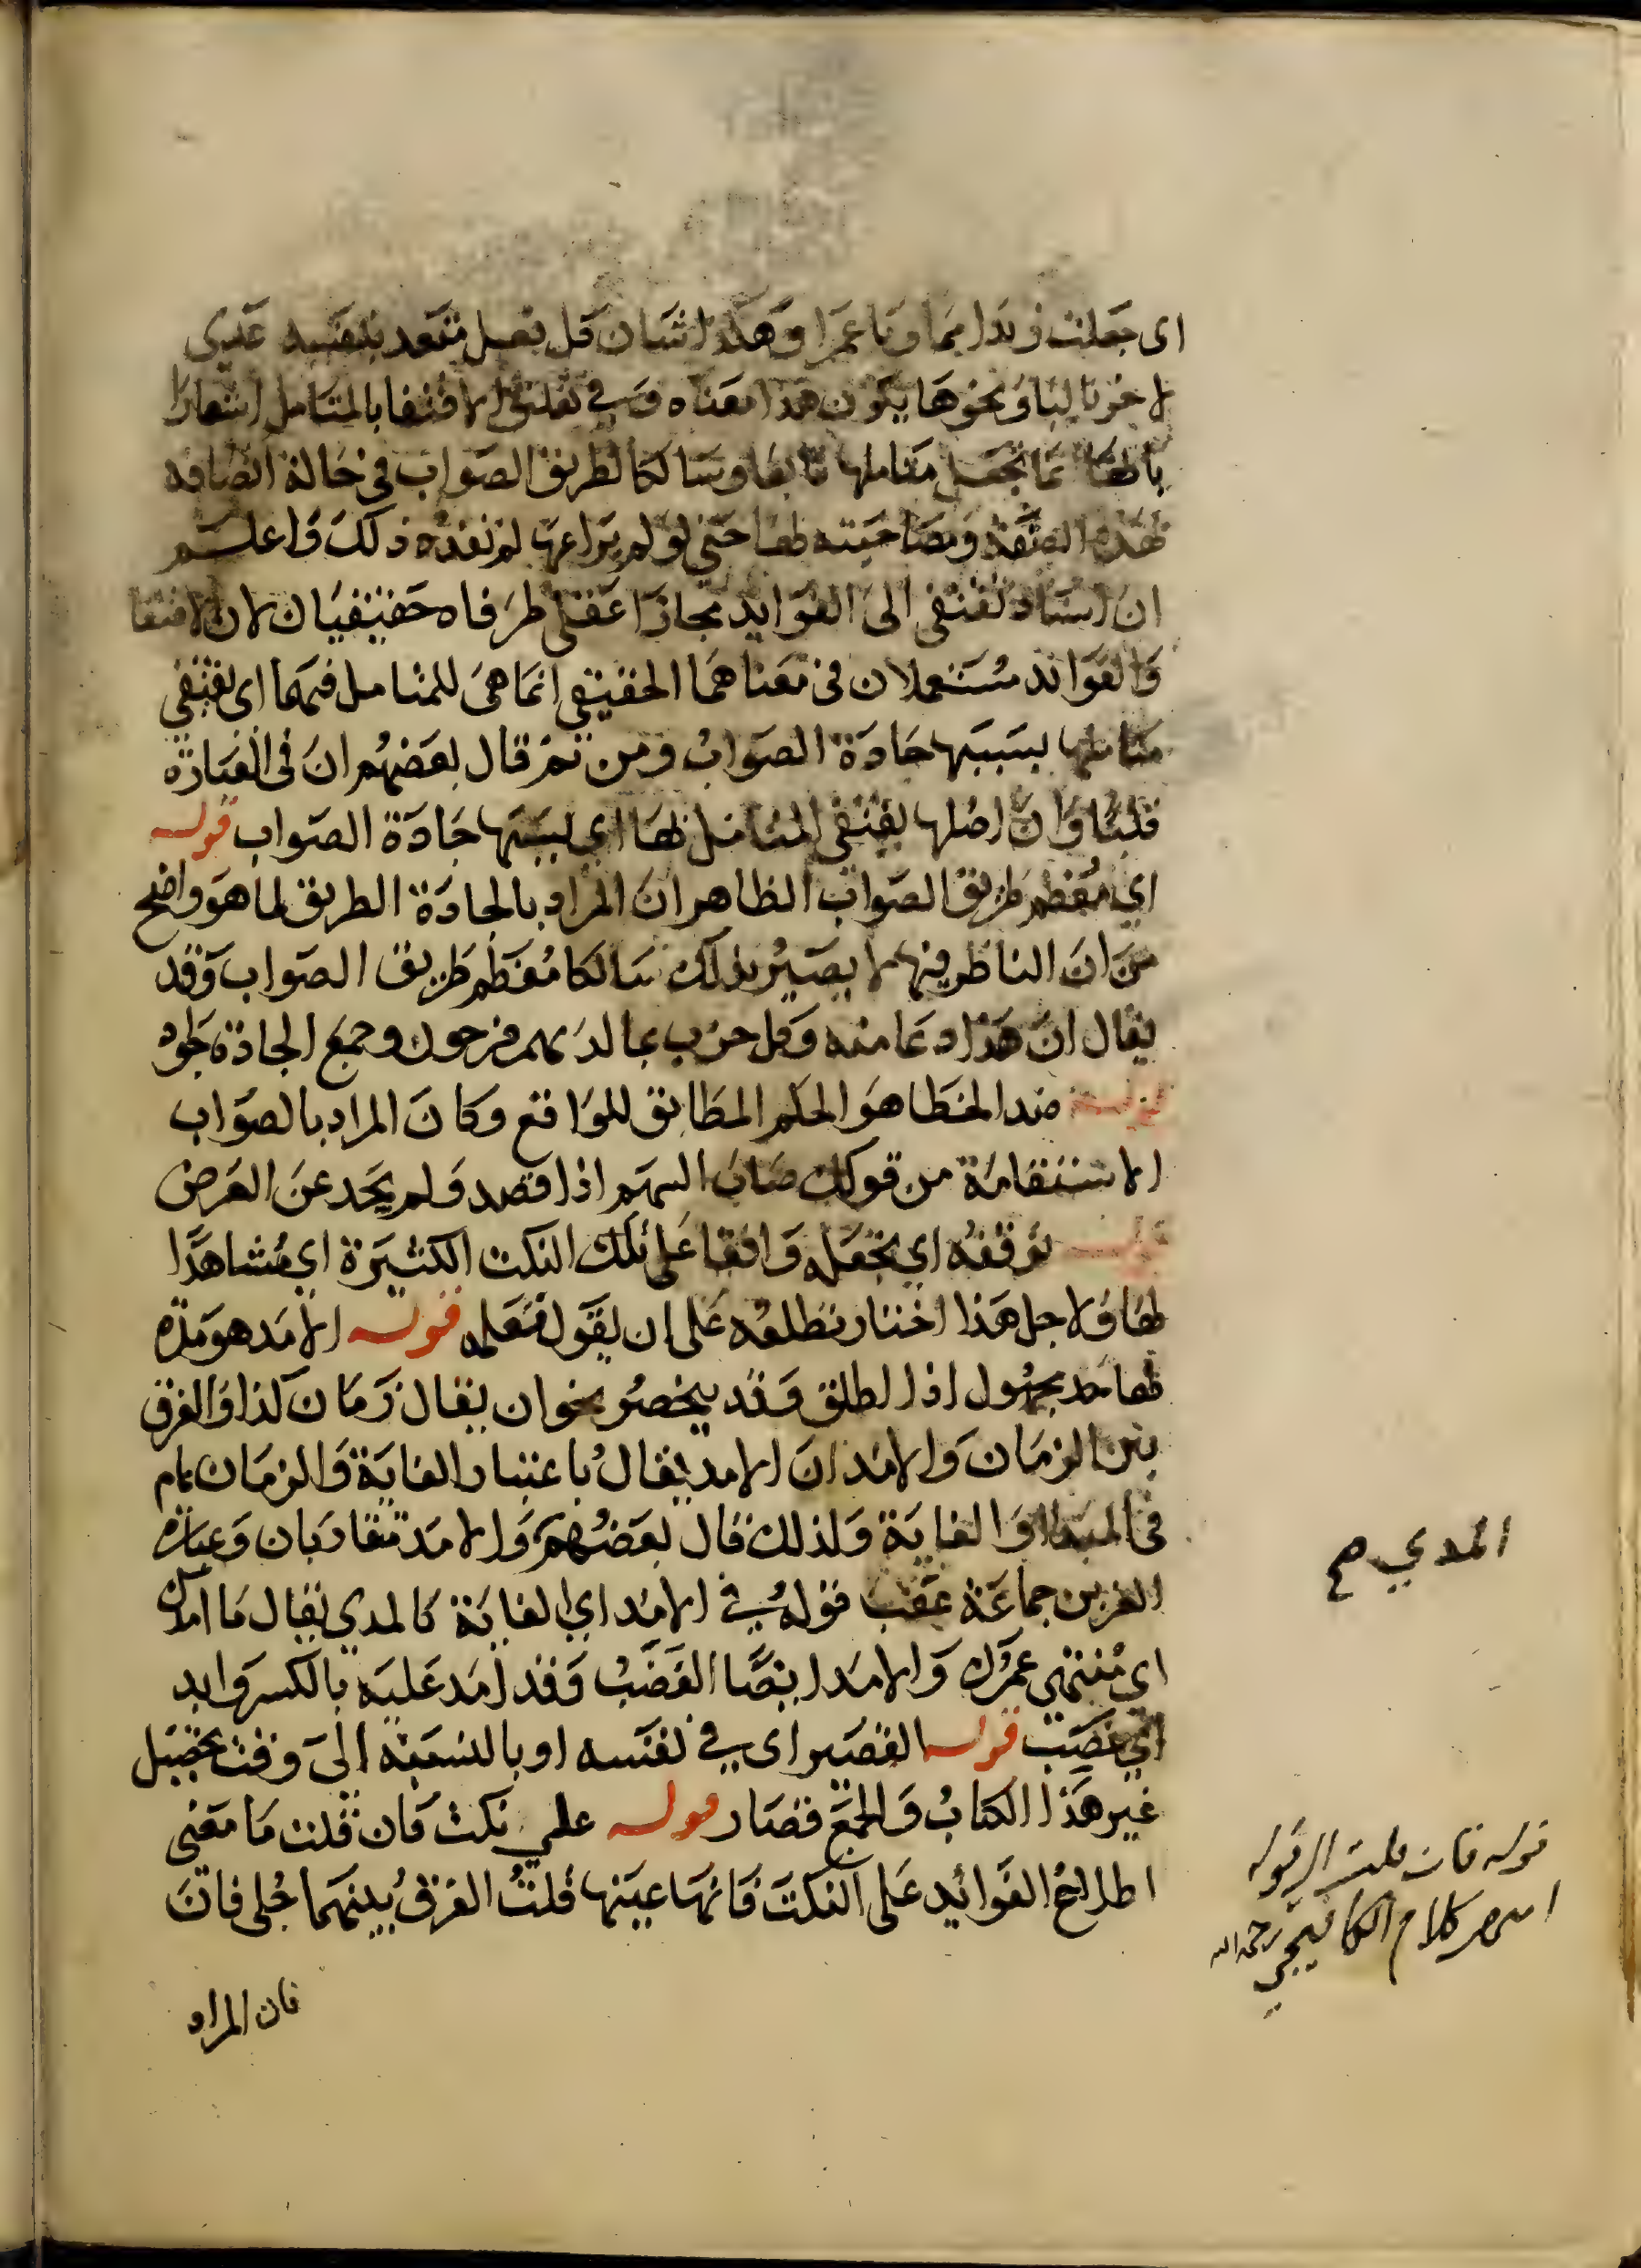 اى جعلت زيدا مما وباعمرا وهذا شان كل فعل متعد بنفسه عدى
لاخر بالبا ونحوها يكون هذا معناه وفي الاقتفا بالمتامل اشعارا
بانها مما تجعل متاملها تابعا وسالكا لطريق الصواب فى حالة اتصافه
بهذه الصفة ومصاحبته لها حتى لو لم يراعها لم تفده ذلك واعلم
ان اسناد تقتفى الى الفوايد مجازا عقلى طرفاه حقيقيان لان الاقتفا
والفوائد مستعملان فى معناهما الحقيقى انما هى للمتامل فيهما اى يقتفي
متاملها بسببها جادة الصواب ومن ثم قال بعضهم ان فى العبارة
قلبا وان اصلها يقتفى المتامل لها اي بسببها جادة الصواب قوله
اي معظم طريق الصواب الظاهر ان المراد بالجادة الطريق لما هو واضح
من ان الناظر فيها لا يصير بذلك سالكا معظم طريق الصواب وقد
يقال ان هذا ادعا منه وكل حزب بما لديهم فرحون وجمع الجادة جواد
قوله ضد الخطا هو الحكم المطابق للواقع وكان المراد بالصواب
الاستقامة من قولك صاب السهم اذا قصد ولم يحد عن الغرض
قوله توقفه اي تجعله واقفا على تلك النكت الكثيرة اي مشاهدا
لها ولاجل هذا اختار تطلعه على ان يقول تعلمه قوله الامد هو مدة
لها حد مجهول اذا اطلق وقد ينحصر نحو ان يقال زمان كذا والفرق
بين الزمان والامد ان الامد يقال باعتبار الغاية والزمان عام
فى المبدا والغاية ولذلك قال بعضهم والامد متقاربان وعبارة
العز بن جماعة عقب قوله في الامد اي الغاية كالمدي يقال ما امدك
اي منتهى عمرك والامد ايضا الغضب وقد امد عليه بالكسر وابد
اي غضب قوله القصير اى في نفسه او بالنسبة الى وقت تحصيل
غير هذا الكتاب والجمع قصار قوله على نكت فان قلت ما معنى
اطلاع الفوائد على النكت فانها عينها قلت الفرق بينهما جلى فان
فان المراد
المدي صح
قوله فان قلت الى قوله
كلام الكافيجي رحمه الله